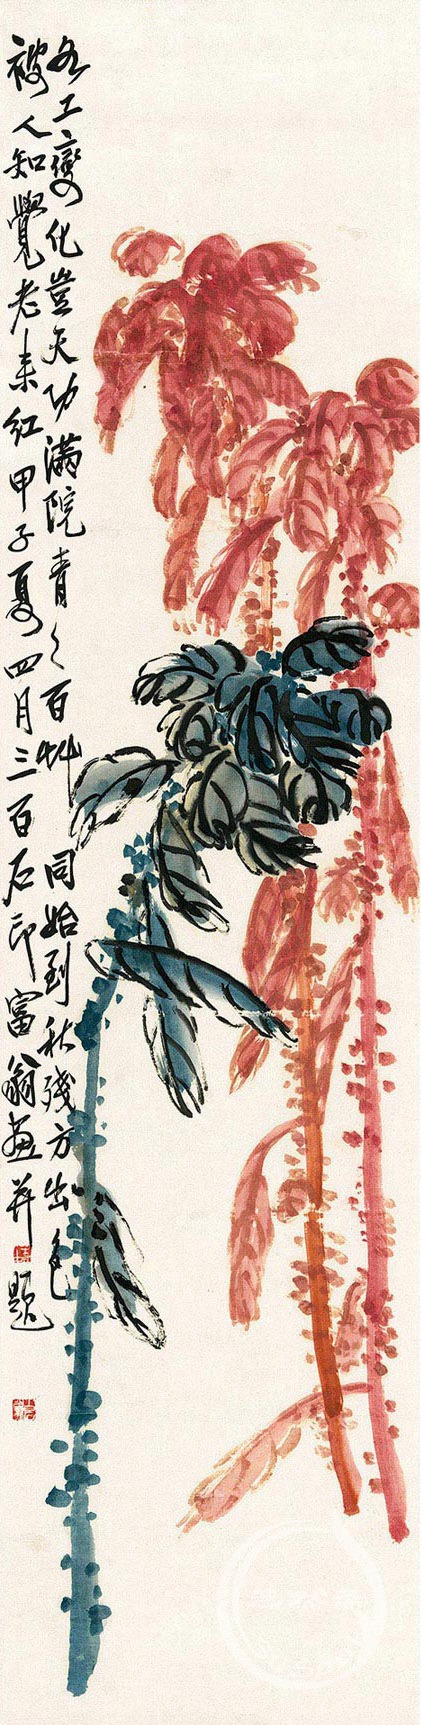 工變化豈天功滿院青々百艸同始到秋殘方出色
被人知覺老来紅甲子夏四月三百石印富翁画并題